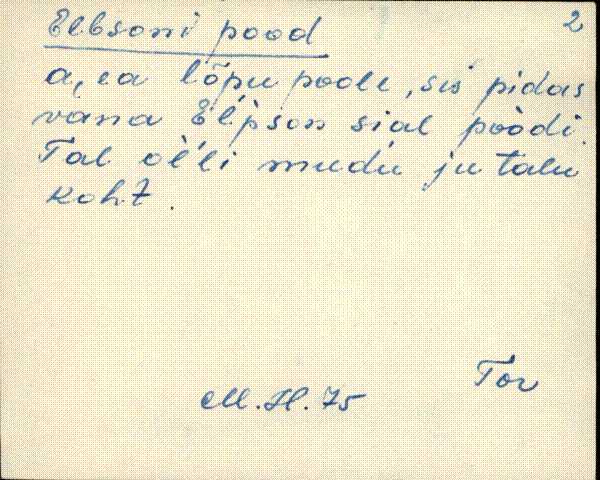 Elbsoni pood 2
a, ea lõpu poole, sis pidas
vana Èl̀pson sial pòòdi.
Tal òlli muidu ju talu
koht.
Tor
M.H.75